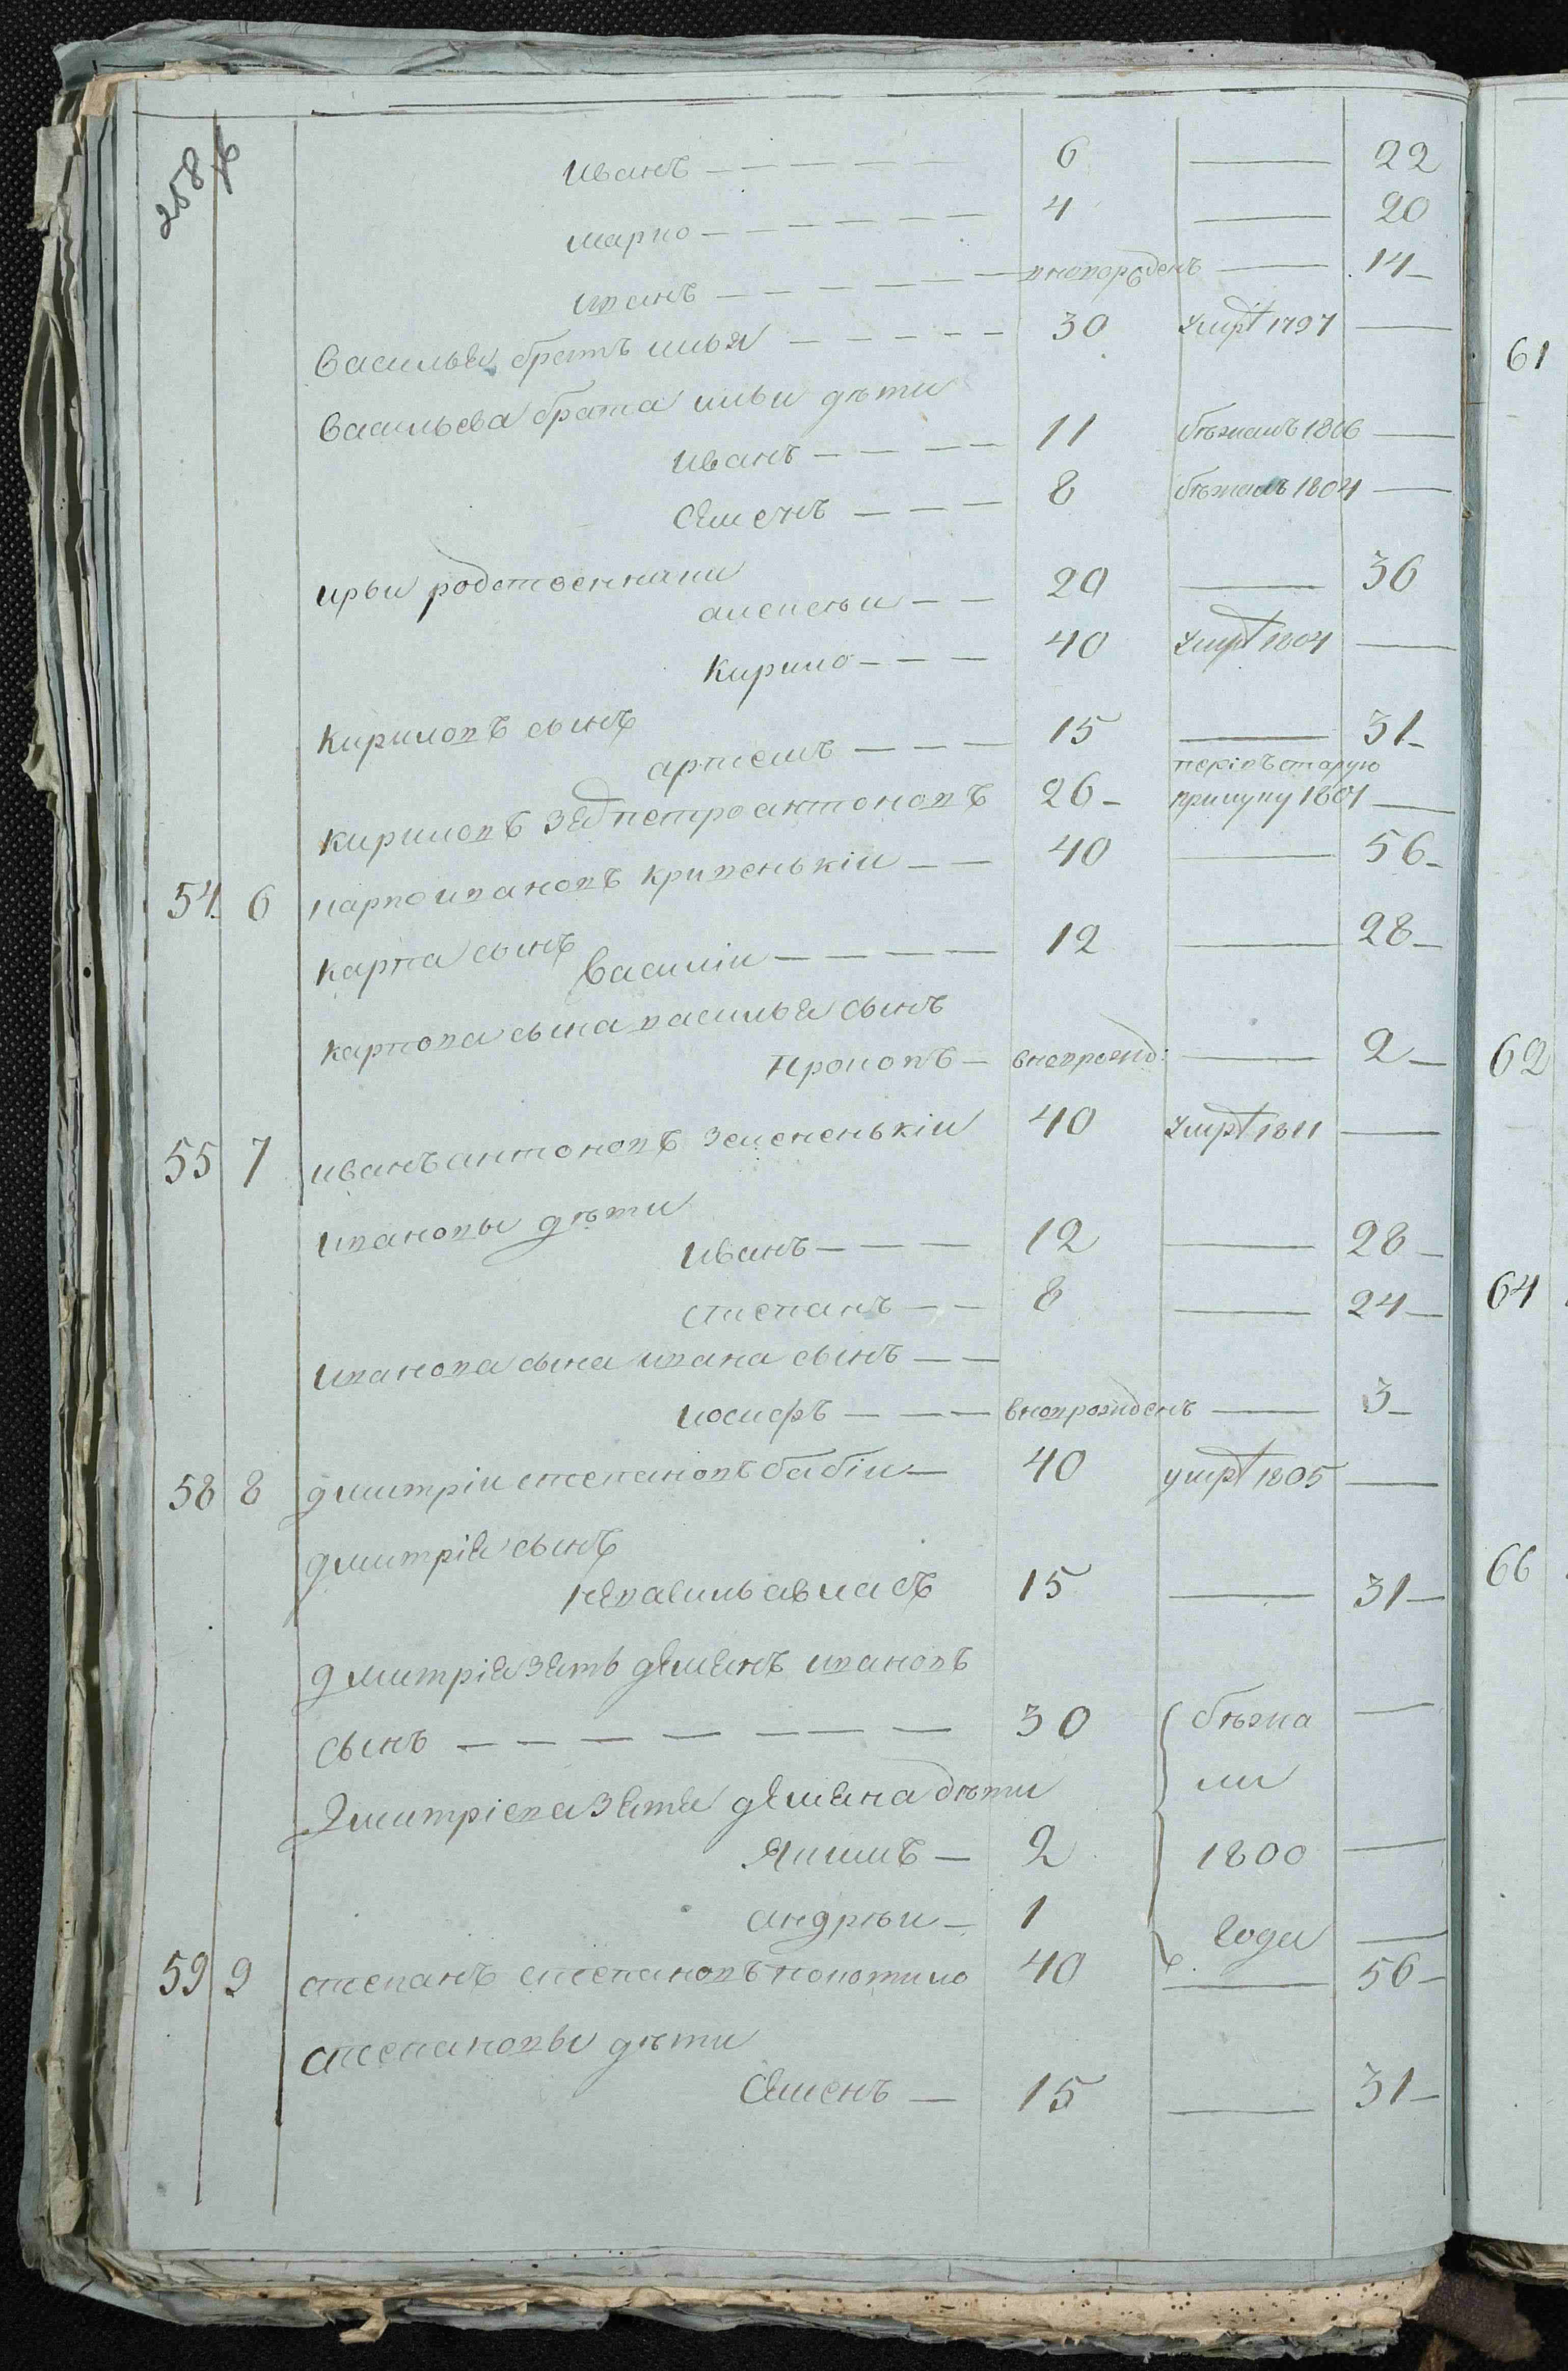 258
Иванъ — — — — 6 — 22
Марко — — — — — 4 — 20
Иванъ — — — — — вновь рожденъ — 14
Василья братъ илья — — — — — 30 умре 1797 —
Васильева брата ильи дѣти
Иванъ — — — — 11 бѣжалъ 1806 —
Семенъ — — — 8 бѣжалъ 1804 —
ильи родственники
алексѣи — — 20 — 36
Кирило — — — 40 умре 1804 —
Кириловъ сынъ
артемъ — — — 15 — 31
Кириловъ зять петро антоновъ 26 —
54 6 карпо ивановъ кривенькіи — — 40 — 56
карпа сынъ
Василіи — — — — 12 — 28
карпова сына василья сынъ
Прокопъ — вновь рожд: — 2
55 7 иванъ антоновъ зелененькіи 40 умре 1811 —
ивановы дѣти
Иванъ — — — 12 — 28
степанъ — — 8 — 24
иванова сына ивана сынъ — —
иосифъ — — — вновь рожденъ — 3
58 8 дмитріи степановъ бабіи — 40 умре 1805 —
дмитрія сынъ
15 — 31
дмитрія зять демянъ ивановъ
сынъ — — — — — — — 30 бѣжа —
дмитріева зятя демяна дѣти ли
Якимъ — 2 1800 —
андрѣи — 1 года —
59 9 степанъ степановъ 40 — 56
степановы дѣти
Семенъ — 15 — 31
61
62
64
66